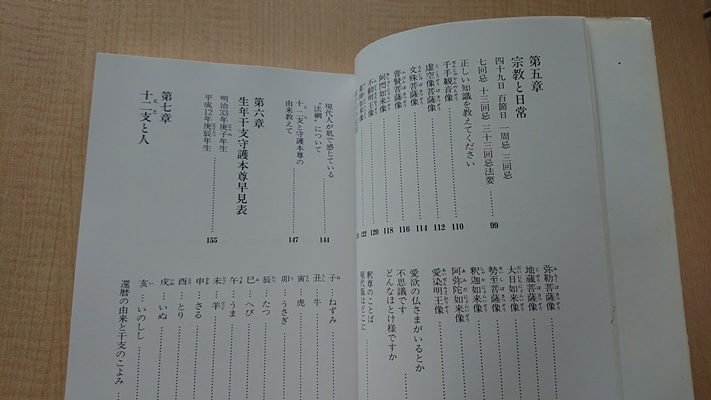 第五章
宗教と日常
四十九日 百箇日 一周忌 三回忌
七回忌 十三回忌 三十三回忌法要……99
正しい知識を教えてください……110
千手観音像……112
虚空像菩薩像……114
文殊菩薩像……116
普賢菩薩像……118
阿閦如来像……120
不動明王像……122
弥勒菩薩像
地蔵菩薩像
大日如来像
勢至菩薩像
釈迦如来像
阿弥陀如来像
愛染明王像
愛欲の仏さまがいるとか
不思議です
どんなほとけ様ですか
釈尊のことば
現代人が肌で感じている
について……144
十二支と守護本尊の
由来教えて……147
第六章
生年干支守護本尊早見表
明治33年庚子年生
平成12年庚辰年生……155
第七章
十二支と人
子…ねずみ
丑…牛
寅…虎
卯…うさぎ
辰…たつ
巳…へび
午…うま
未…羊
申…さる
酉…とり
戌…いぬ
亥…いのしし
還暦の由来と干支のこよみ